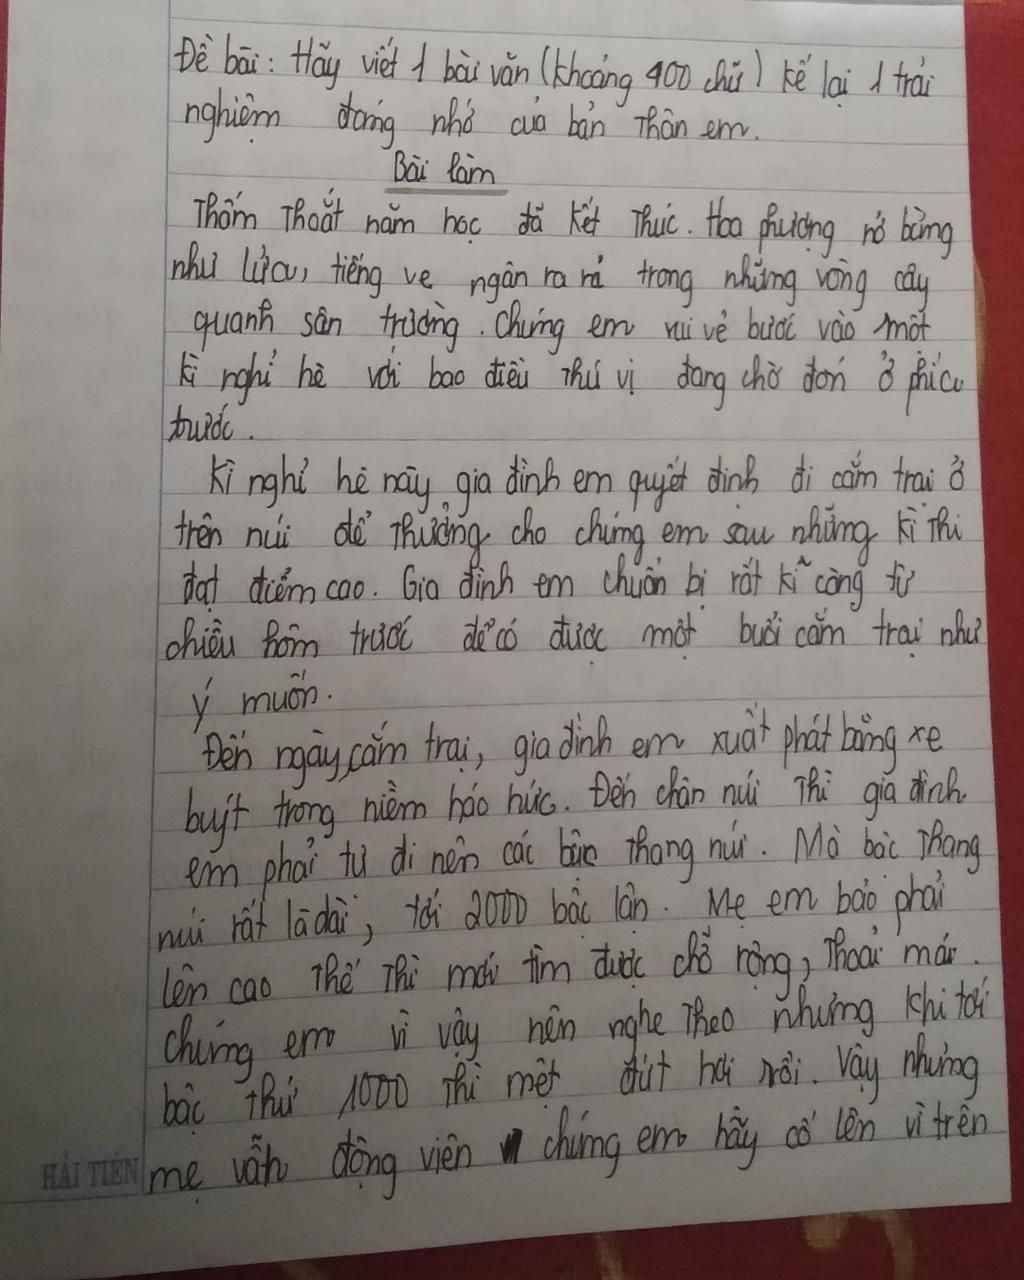 Đề bài: Hãy viết 1 bài văn (khoảng 400 chữ) kể lại 1 trải
nghiệm đáng nhớ của bản thân em.
Bài làm
Thấm thoắt năm học đã kết thúc. Hoa phượng nở bừng
như lửa, tiếng ve ngân ra rả trong những vòng cây
quanh sân trường. Chúng em vui vẻ bước vào một
kì nghỉ hè với bao điều thú vị đang chờ đón ở phía
trước.
Kì nghỉ hè này, gia đình em quyết định đi cắm trại ở
trên núi để thưởng cho chúng em sau những kì thi
đạt điểm cao. Gia đình em chuẩn bị rất kĩ càng từ
chiều hôm trước để có được một buổi cắm trại như
ý muốn.
Đến ngày cắm trại, gia đình em xuất phát bằng xe
buýt trong niềm háo hức. Đến chân núi thì gia đình
em phải tự đi nên các bậc thang núi. Mà bậc thang
núi rất là dài, tới 2000 bậc lận. Mẹ em bảo phải
lên cao thế thì mới tìm được chỗ rộng, thoải mái.
Chúng em vì vậy nên nghe theo nhưng khi tới
bậc thứ 1000 thì mệt đứt hơi rồi. Vậy nhưng
mẹ vẫn động viên chúng em hãy cố lên vì trên
HẢI TIẾN